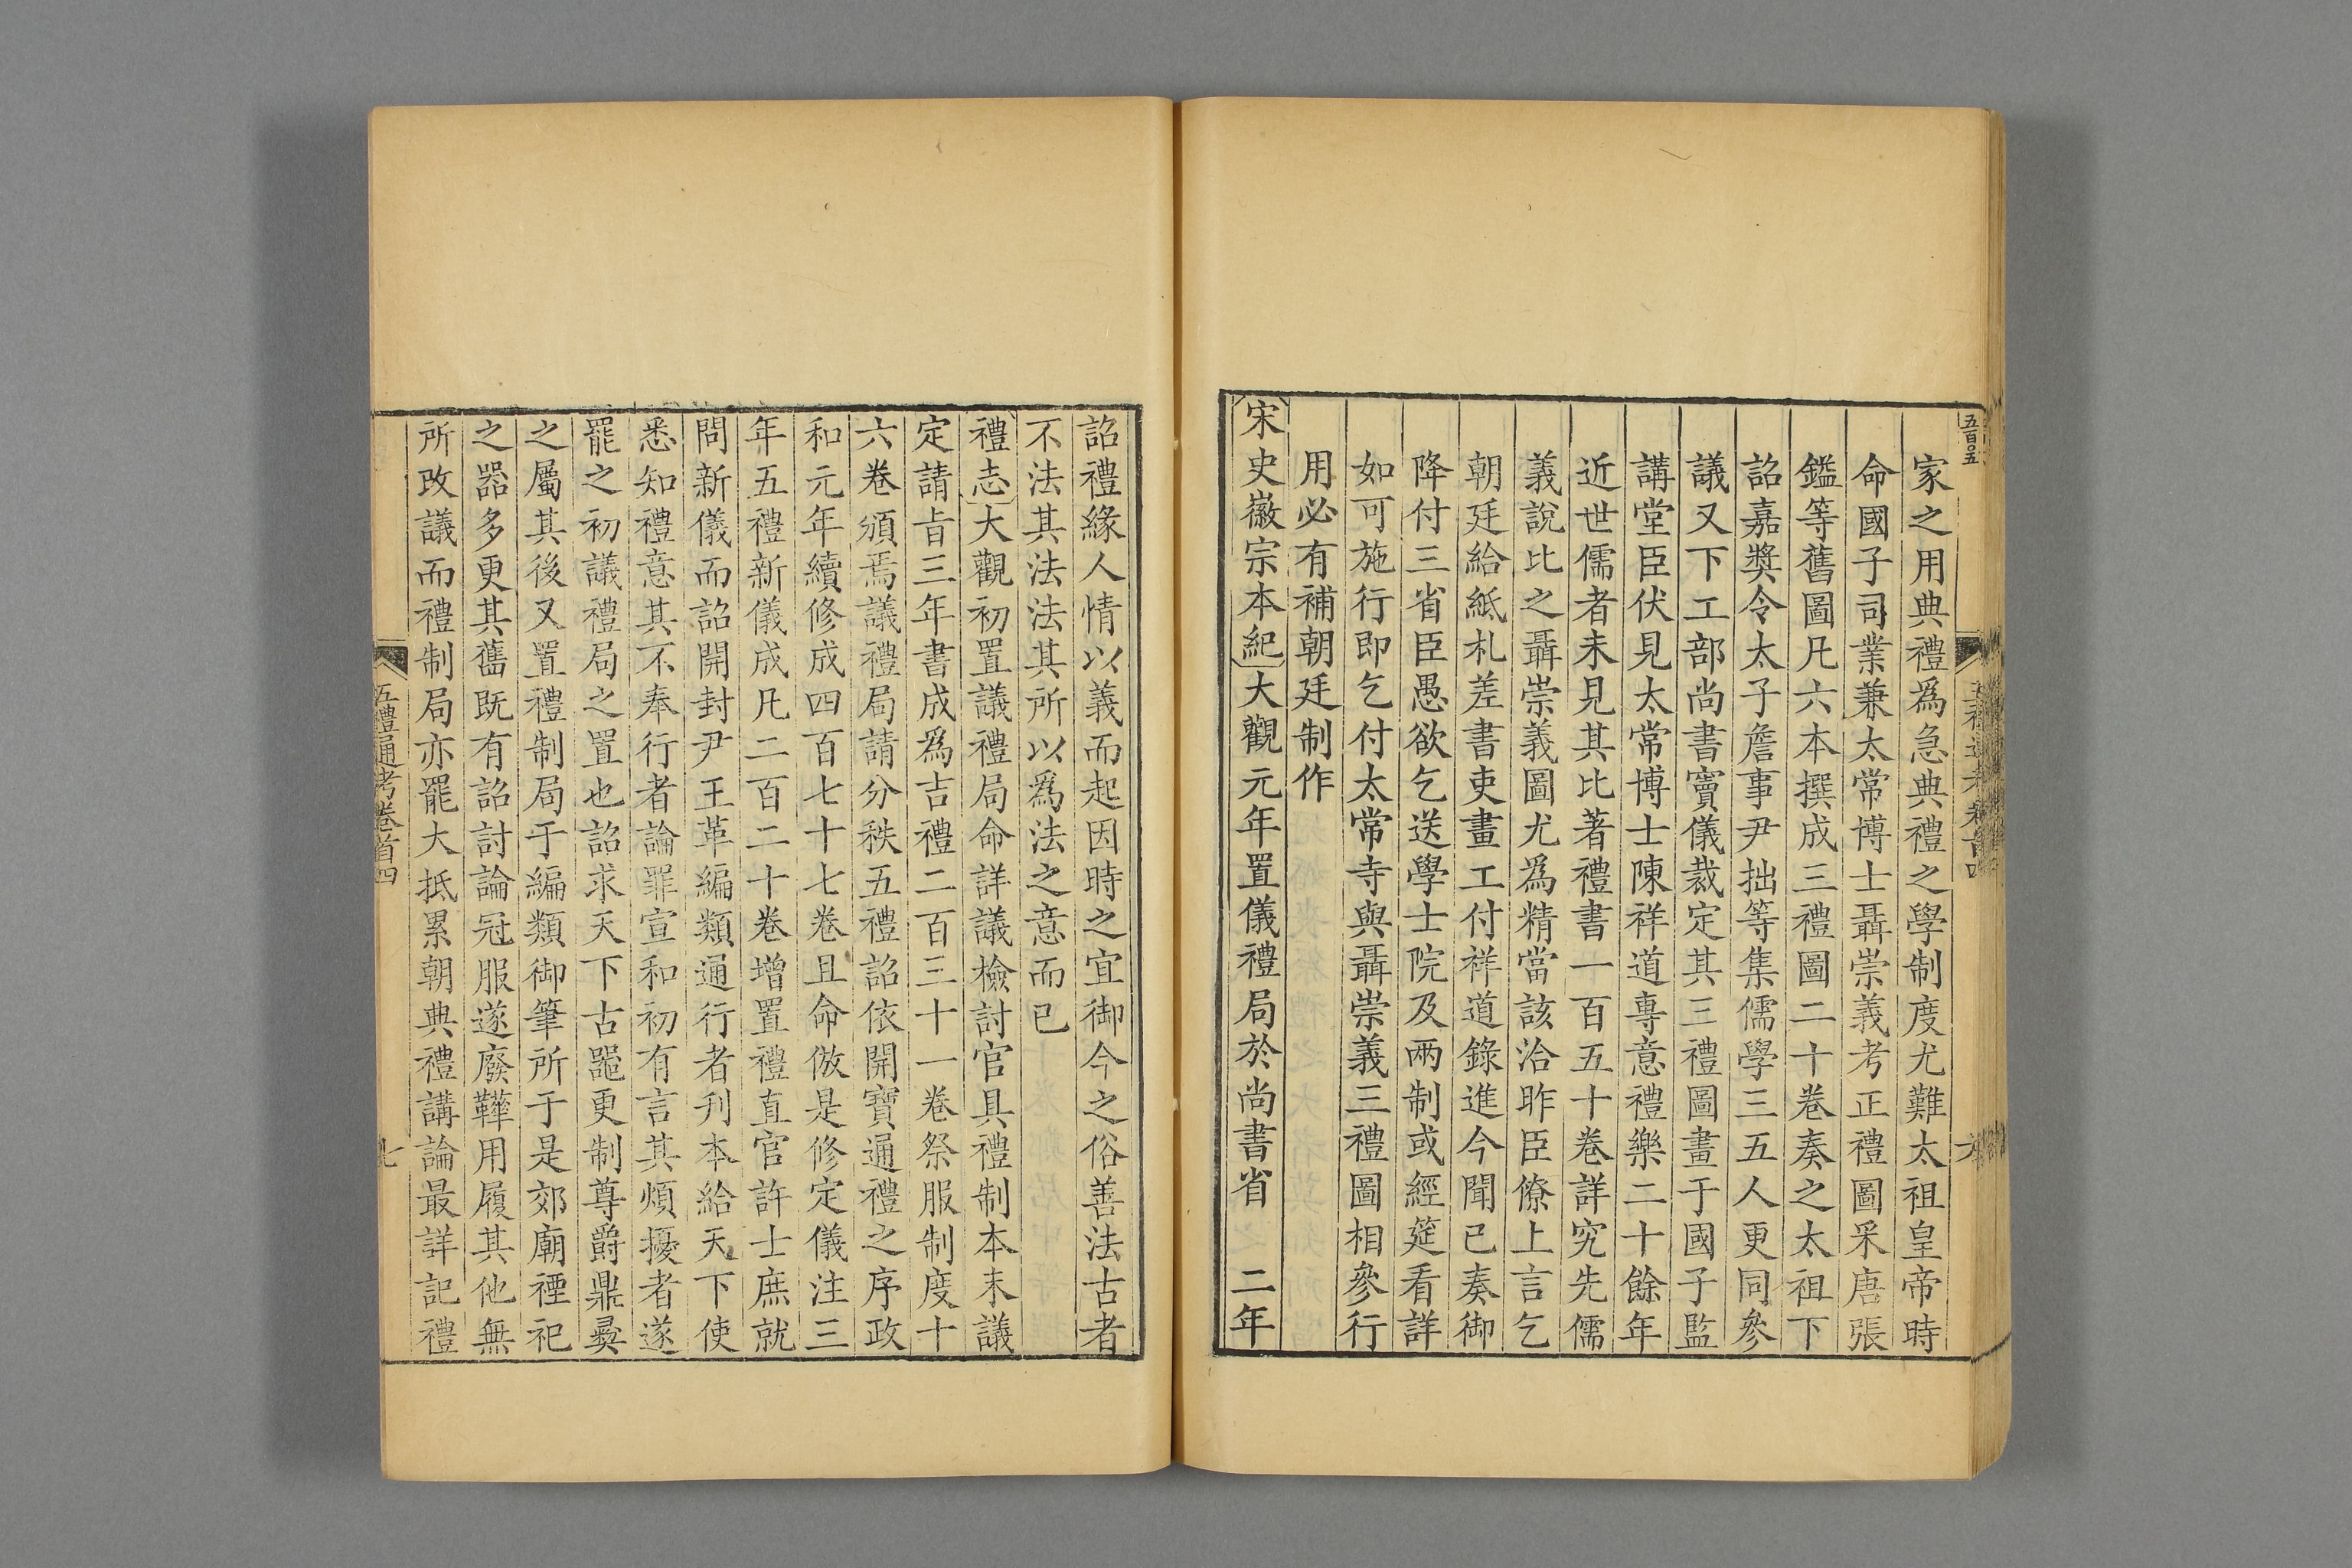 五百〇五
家之用典禮爲急典禮之學制度尤難太祖皇帝時
命國子司業兼太常博士聶崇義考正禮圖采唐張
鎰等舊圖凡六本撰成三禮圖二十卷奏之太祖下
詔嘉奬令太子詹事尹拙等集儒學三五人更同參
議又下工部尚書竇儀裁定其三禮圖畫于國子監
講堂臣伏見太常博士陳祥道專意禮樂二十餘年
近世儒者未見其比著禮書一百五十卷詳究先儒
義說比之聶崇義圖尤爲精當該洽昨臣僚上言乞
朝廷給紙札差書吏畫工付祥道錄進今聞已奏御
降付三省臣愚欲乞送學士院及兩制或經筵看詳
如可施行即乞付太常寺與聶崇義三禮圖相參行
用必有補朝廷制作
宋史徽宗本紀大觀元年置儀禮局於尚書省 二年
詔禮緣人情以義而起因時之宜御今之俗善法古者
不法其法法其所以爲法之意而已
禮志大觀初置議禮局命詳議檢討官具禮制本末議
定請旨三年書成爲吉禮二百三十一卷祭服制度十
六卷頒焉議禮局請分秩五禮詔依開寶通禮之序政
和元年續修成四百七十七卷且命倣是修定儀注三
年五禮新儀成凡二百二十卷增置禮直官許士庶就
問新儀而詔開封尹王革編類通行者刋本給天下使
悉知禮意其不奉行者論罪宣和初有言其煩擾者遂
罷之初議禮局之置也詔求天下古噐更制尊爵鼎彛
之屬其後又置禮制局于編類御筆所于是郊廟禋祀
之器多更其舊既有詔討論冠服遂廢鞾用履其他無
所改議而禮制局亦罷大抵累朝典禮講論最詳記禮
五禮通考卷首四
七